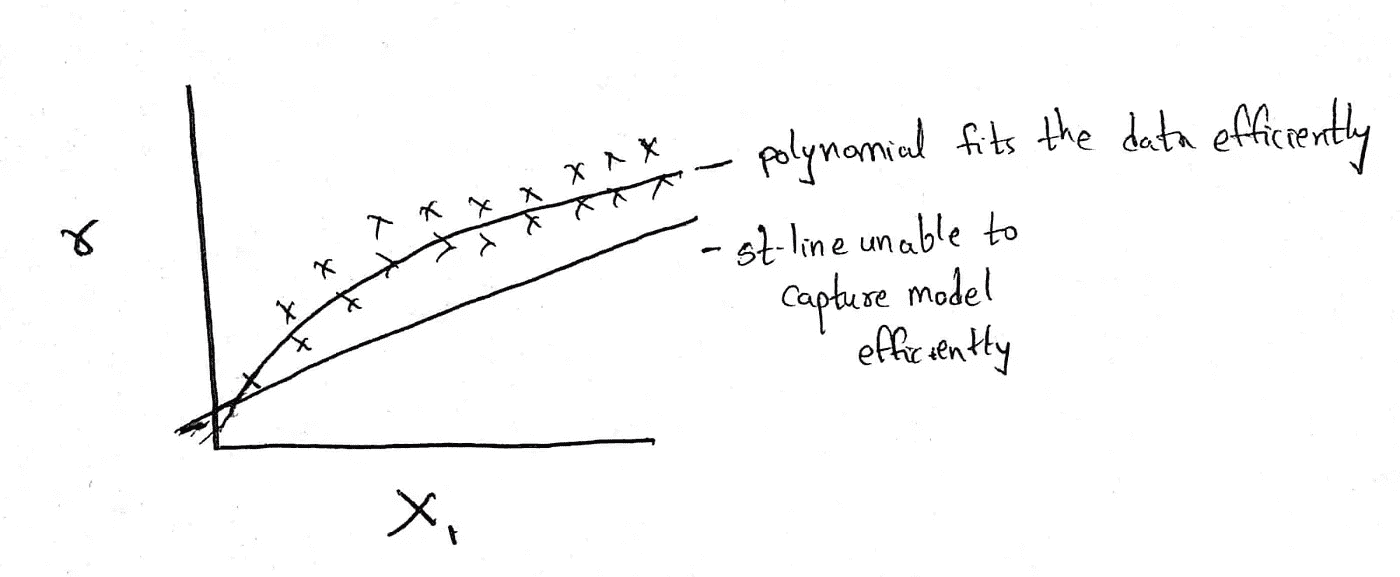 polynomial fits the data efficiently
γ
- st-line unable to
capture model
efficiently
X₁